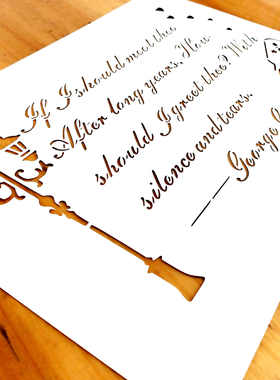 If I should meet thee
After long years, How
should I greet thee? With
silence and tears.
—George